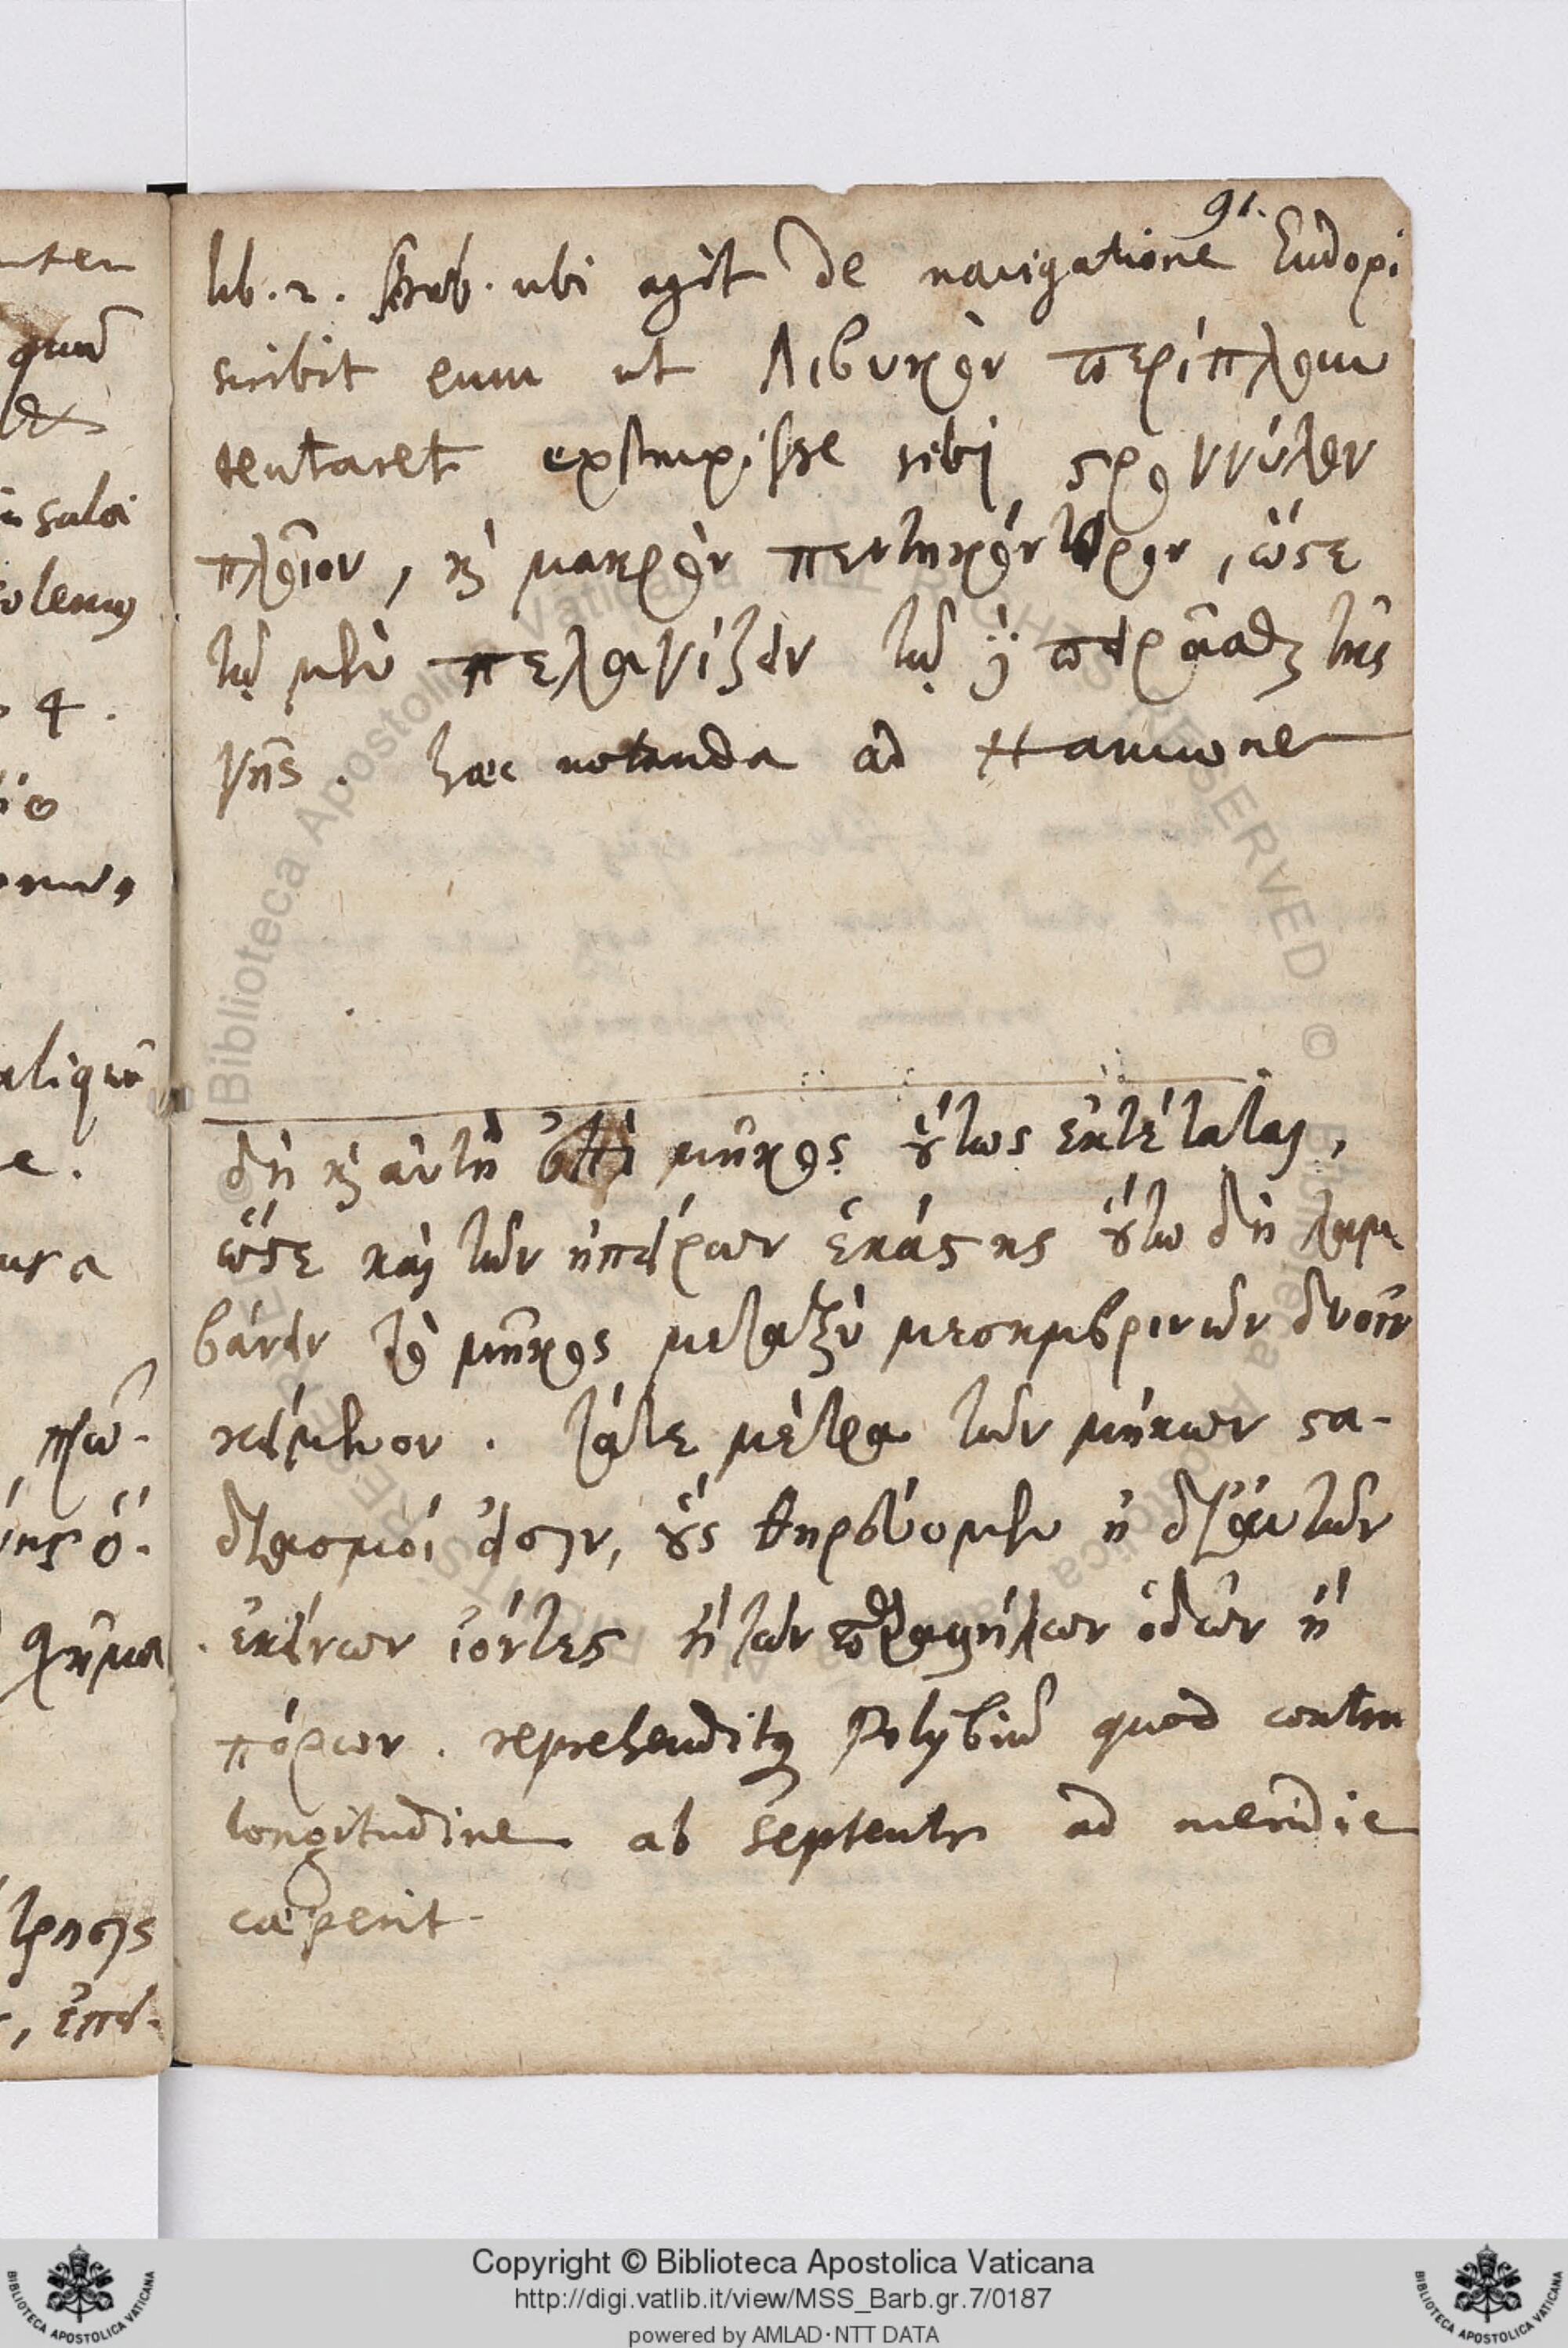 91.
lib. 2. Strab. ubi agit de navigatione Eudoxi
scribit eum ut Λιβυκὸν περίπλουν
tentaret exstruxisse sibi στρογγύλον
πλοῖον, καὶ μακρὸν πεντηκόντορον, ὥστε
τῷ μὲν πελαγίζειν τῷ δὲ πειρᾶσθαι τῆς
γῆς. haec notanda ad Hannone
δὴ καὶ αὐτὴ ἐπὶ μῆκος οὕτως ἐκτέταται,
ὥστε καὶ τῶν ἠπείρων ἑκάστης οὕτω δὴ λαμ
βάνειν τὸ μῆκος μεταξὺ μεσημβρινῶν δυοῖν
κείμενον. τάτε μέτρα τῶν μήκων στα-
διασμοί εἰσιν, οὓς θηρεύομεν ἢ δι' αὐτῶν
ἐκείνων ἰόντες ἢ τῶν παραλλήλων ὁδῶν ἢ
πόρων. reprehenditq Polybiū quod contra
longitudine ab septentr ad meridie
caperit.
nten
quū
&
saloi
olemus
4.
aliquā
e.
ura
ης ὁ-
χῆμα
τρησις
, ἐπει-
Copyright © Biblioteca Apostolica Vaticana
http://digi.vatlib.it/view/MSS_Barb.gr.7/0187
powered by AMLAD·NTT DATA
BIBLIOTECA APOSTOLICA VATICANA
BIBLIOTECA APOSTOLICA VATICANA